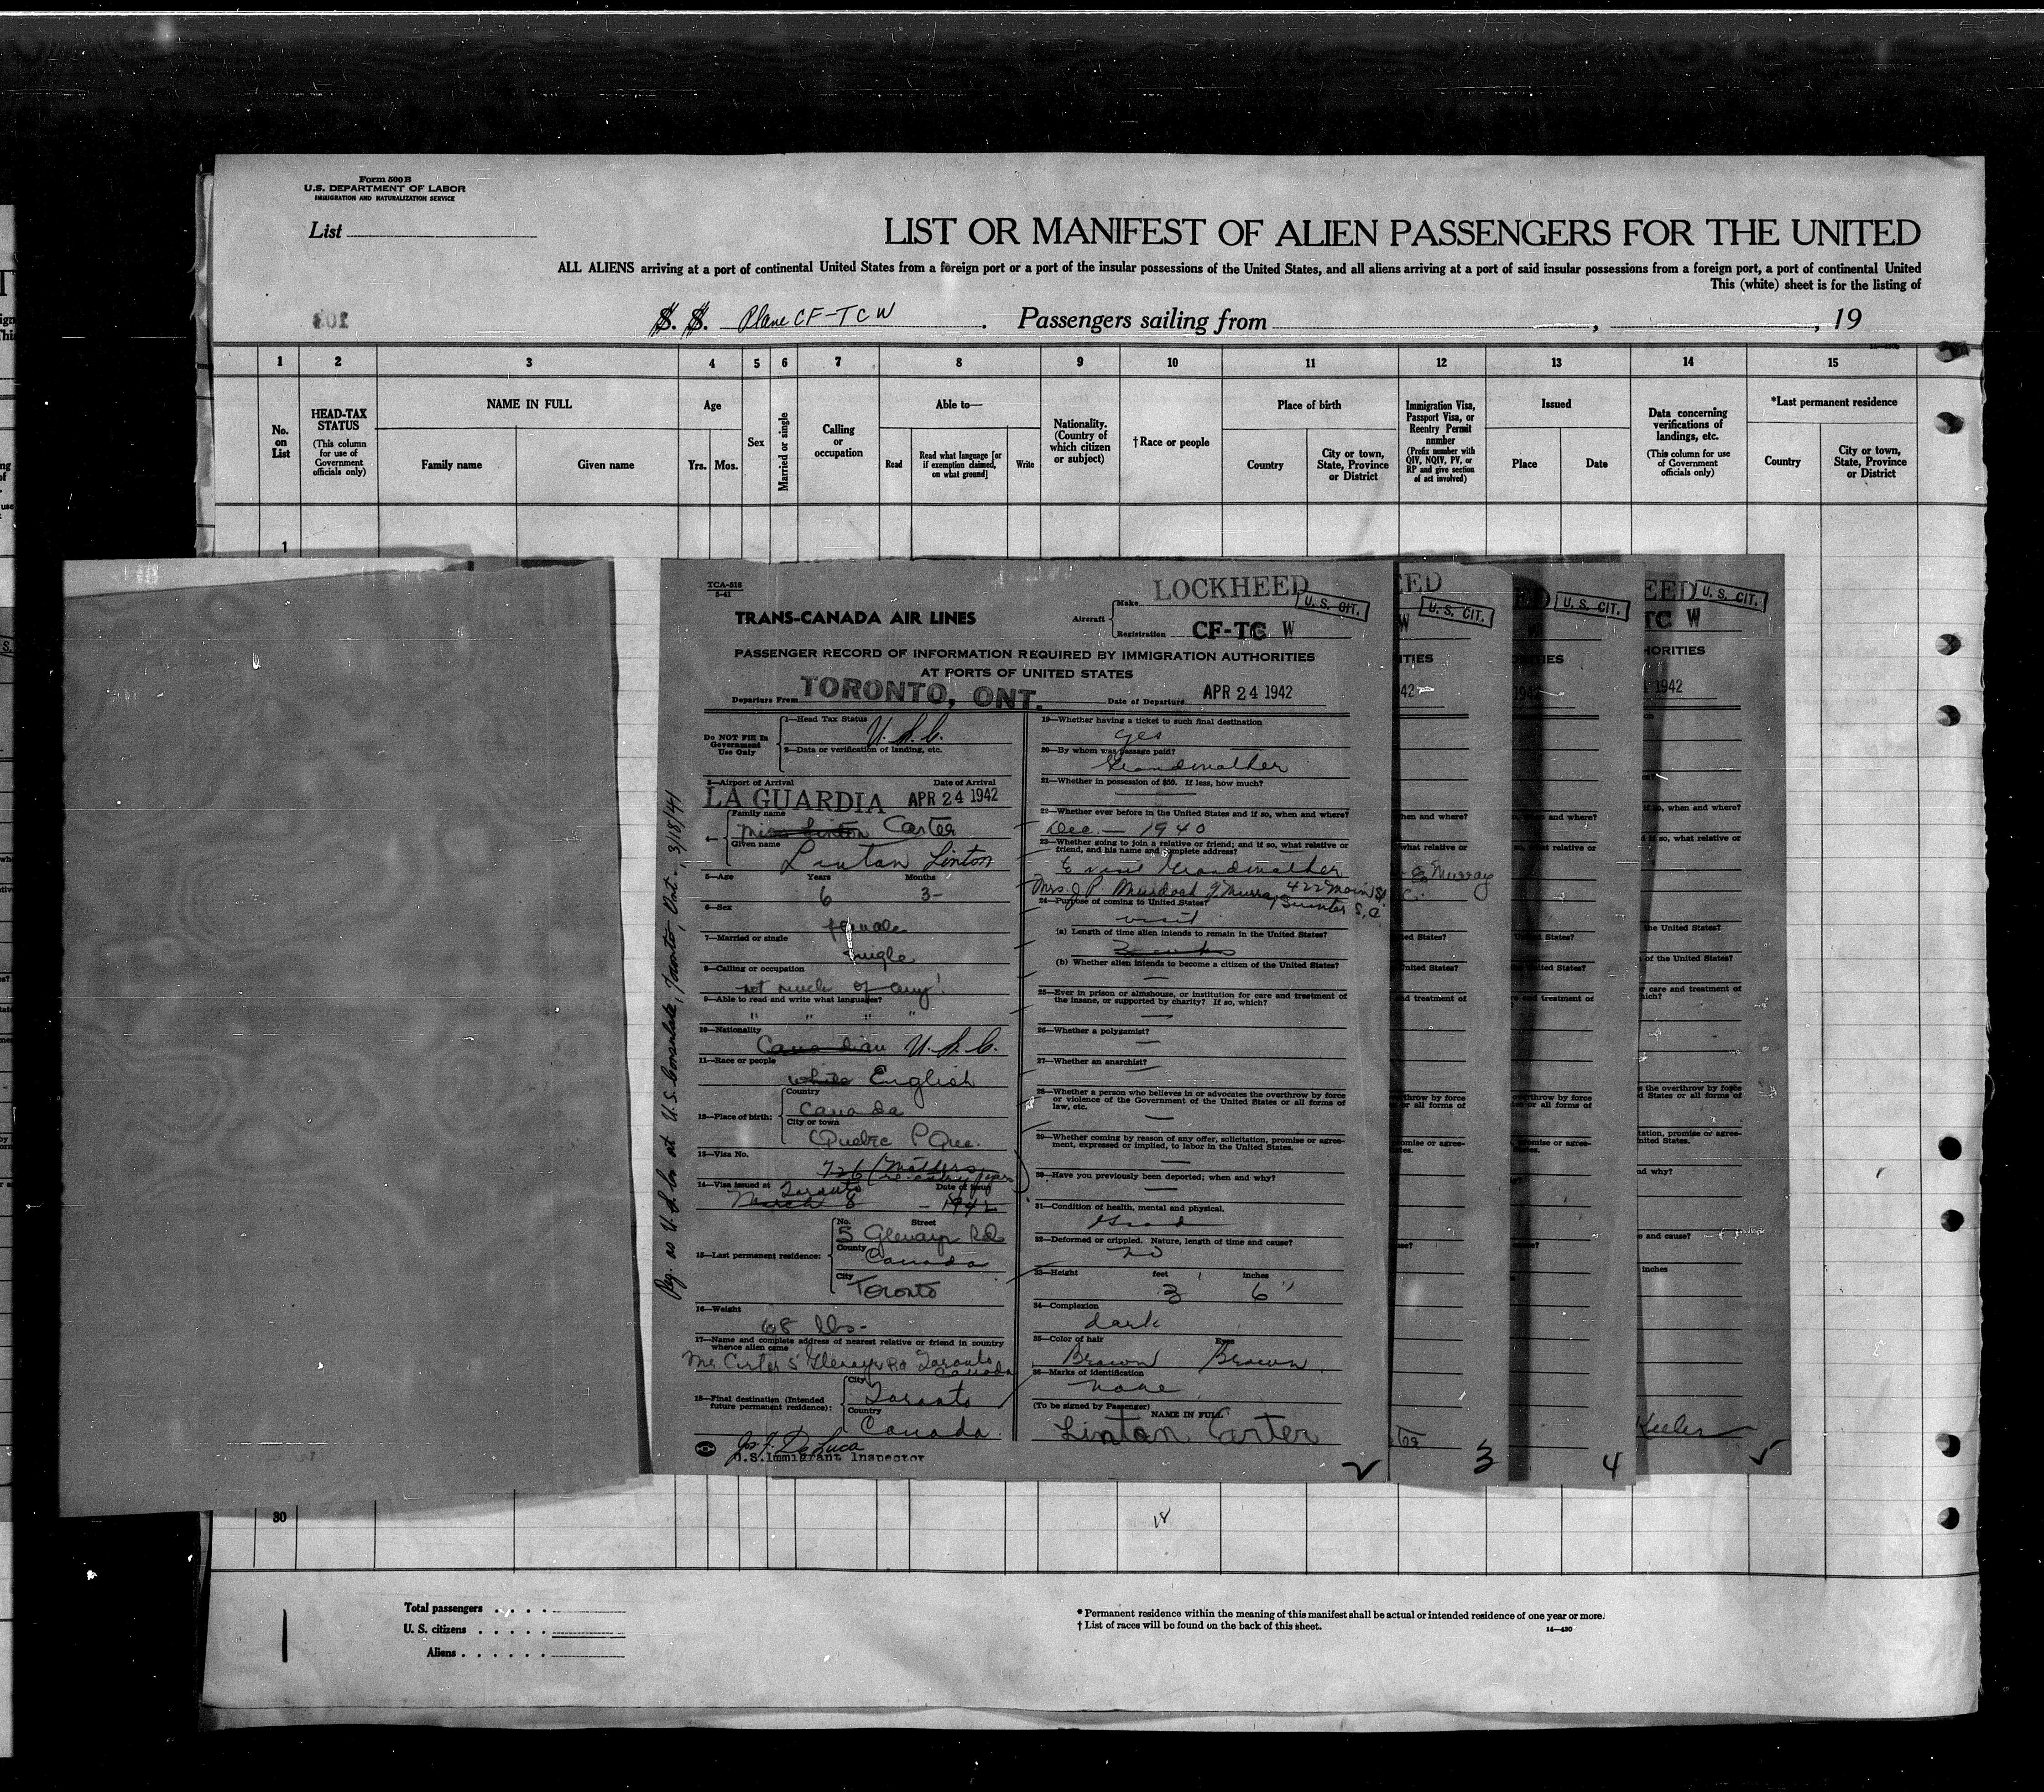 Form 500 B
U.S. DEPARTMENT OF LABOR
IMMIGRATION AND NATURALIZATION SERVICE
List
LIST OR MANIFEST OF ALIEN PASSENGERS FOR THE UNITED
ALL ALIENS arriving at a port of continental United States from a foreign port or a port of the insular possessions of the United States, and all aliens arriving at a port of said insular possessions from a foreign port, a port of continental United
This (white) sheet is for the listing of
S. S. Plane CF-TCW . Passengers sailing from , , 19
1 2 3 4 5 6 7 8 9 10 11 12 13 14 15
No. on List
HEAD-TAX STATUS
(This column for use of Government officials only)
NAME IN FULL
Family name Given name
Age
Yrs. Mos.
Sex
Married or single
Calling or occupation
Able to—
Read
Read what language [or if exemption claimed, on what ground]
Write
Nationality. (Country of which citizen or subject)
†Race or people
Place of birth
Country
City or town, State, Province or District
Immigration Visa, Passport Visa, or Reentry Permit number
(Prefix number with QIV, NQIV, PV, or RP and give section of act involved)
Issued
Place Date
Data concerning verifications of landings, etc.
(This column for use of Government officials only)
*Last permanent residence
Country
City or town, State, Province or District
1
TCA-518
5-41
TRANS-CANADA AIR LINES
Aircraft
Make LOCKHEED
U. S. CIT.
Registration CF-TC W
PASSENGER RECORD OF INFORMATION REQUIRED BY IMMIGRATION AUTHORITIES
AT PORTS OF UNITED STATES
Departure From TORONTO, ONT. Date of Departure APR 24 1942
Do NOT Fill In Government Use Only
1—Head Tax Status
U.S.C.
2—Data or verification of landing, etc.
3—Airport of Arrival Date of Arrival
LA GUARDIA APR 24 1942
4— Family name
Miss Linton Carter
Given name
Linton Linton
5—Age Years Months
6 3-
6—Sex
female
7—Married or single
single
8—Calling or occupation
not much of any!
9—Able to read and write what languages?
" " " "
10—Nationality
Canadian U.S.C.
11—Race or people
white English
12—Place of birth:
Country
Canada
City or town
Quebec P Que.
13—Visa No.
726 (Mothers
14—Visa issued at Toronto Date of issue
March 8 - 1942
15—Last permanent residence:
No. Street
5 Glenayr Rd
County
Canada
City
Toronto
16—Weight
68 lbs-
17—Name and complete address of nearest relative or friend in country whence alien came
5 Glenayr Rd Toronto
Canada
18—Final destination (Intended future permanent residence):
City
Toronto
Country
Canada
Jos. F. De Luca
U.S. Immigrant Inspector
Reg. as U.S.Cn at U.S. Consulate, Toronto, Ont., 3/18/41
19—Whether having a ticket to such final destination
yes
20—By whom was passage paid?
Grandmother
21—Whether in possession of $50. If less, how much?
22—Whether ever before in the United States and if so, when and where?
Dec. - 1940
23—Whether going to join a relative or friend; and if so, what relative or friend, and his name and complete address?
visit Grandmother
Mrs. J. P. Murdoch Murray 422 Main St
Sumter S.C.
24—Purpose of coming to United States?
visit
(a) Length of time alien intends to remain in the United States?
(b) Whether alien intends to become a citizen of the United States?
25—Ever in prison or almshouse, or institution for care and treatment of the insane, or supported by charity? If so, which?
26—Whether a polygamist?
27—Whether an anarchist?
28—Whether a person who believes in or advocates the overthrow by force or violence of the Government of the United States or all forms of law, etc.
29—Whether coming by reason of any offer, solicitation, promise or agreement, expressed or implied, to labor in the United States.
30—Have you previously been deported; when and why?
31—Condition of health, mental and physical.
Good
32—Deformed or crippled. Nature, length of time and cause?
no
33—Height feet inches
3 6"
34—Complexion
dark
35—Color of hair Eyes
Brown Brown
36—Marks of identification
none
(To be signed by Passenger) NAME IN FULL
Linton Carter
2
U. S. CIT.
Murray
3
U. S. CIT.
4
EED U. S. CIT.
TC W
HORITIES
1942
Keeler
30
18
Total passengers . . . .
U. S. citizens . . . . .
Aliens . . . . . .
* Permanent residence within the meaning of this manifest shall be actual or intended residence of one year or more.
† List of races will be found on the back of this sheet.
14—430